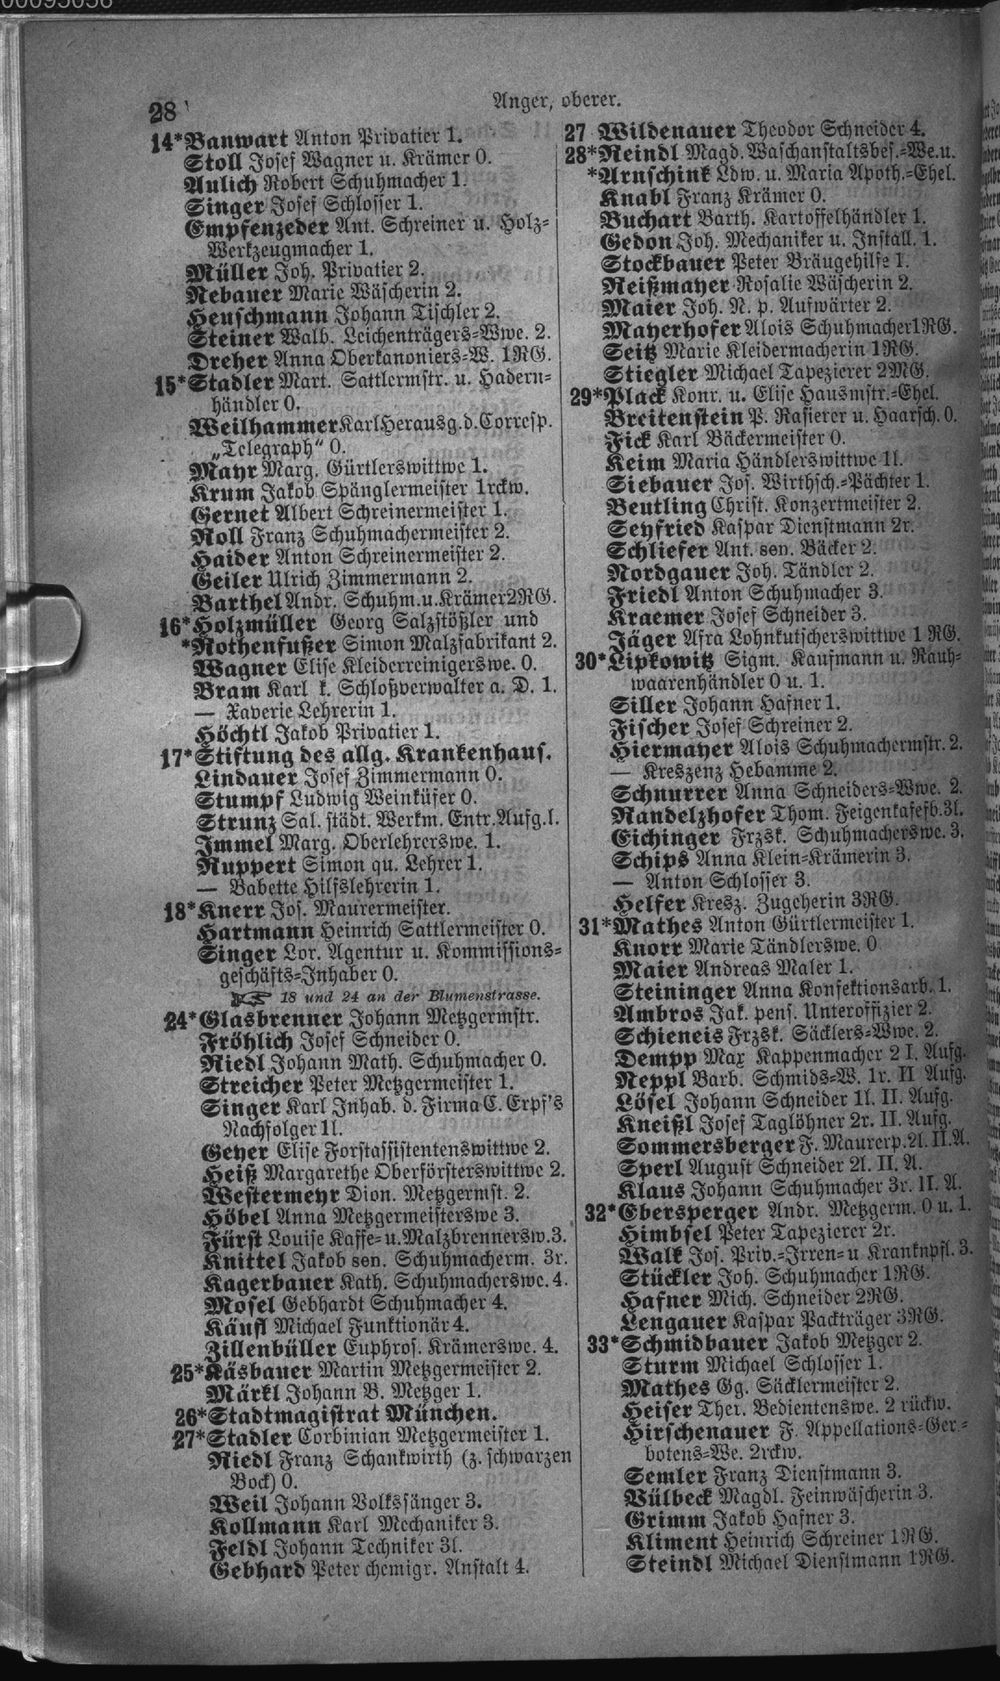 28
Anger, oberer.
14*Banwart Anton Privatier 1.
Stoll Josef Wagner u. Krämer 0.
Aulich Robert Schuhmacher 1.
Singer Josef Schlosser 1.
Empfenzeder Ant. Schreiner u. Holz-
Werkzeugmacher 1.
Müller Joh. Privatier 2.
Nebauer Marie Wäscherin 2.
Heuschmann Johann Tischler 2.
Steiner Walb. Leichenträgers-Wwe. 2.
Dreher Anna Oberkanoniers-W. 1RG.
15*Stadler Mart. Sattlermstr. u. Hadern-
händler 0.
Weilhammer Karl Herausg. d. Corresp.
„Telegraph“ 0.
Mayr Marg. Gürtlerswittwe 1.
Krum Jakob Spänglermeister 1rckw.
Gernet Albert Schreinermeister 1.
Roll Franz Schuhmachermeister 2.
Haider Anton Schreinermeister 2.
Geiler Ulrich Zimmermann 2.
Barthel Andr. Schuhm. u. Krämer 2RG.
16*Holzmüller Georg Salzstößler und
*Rothenfußer Simon Malzfabrikant 2.
Wagner Elise Kleiderreinigerswe. 0.
Bram Karl k. Schloßverwalter a. D. 1.
— Xaverie Lehrerin 1.
Höchtl Jakob Privatier 1.
17*Stiftung des allg. Krankenhaus.
Lindauer Josef Zimmermann 0.
Stumpf Ludwig Weinküfer 0.
Strunz Sal. städt. Werkm. Entr.Aufg.l.
Immel Marg. Oberlehrerswe. 1.
Ruppert Simon qu. Lehrer 1.
— Babette Hilfslehrerin 1.
18*Knerr Jos. Maurermeister.
Hartmann Heinrich Sattlermeister 0.
Singer Lor. Agentur u. Kommissions-
geschäfts-Inhaber 0.
☞ 18 und 24 an der Blumenstrasse.
24*Glasbrenner Johann Metzgermstr.
Fröhlich Josef Schneider 0.
Riedl Johann Math. Schuhmacher 0.
Streicher Peter Metzgermeister 1.
Singer Karl Inhab. d. Firma C. Erpf's
Nachfolger 1l.
Geyer Elise Forstassistentenswittwe 2.
Heiß Margarethe Oberförsterswittwe 2.
Westermeyr Dion. Metzgermst. 2.
Höbel Anna Metzgermeisterswe 3.
Fürst Louise Kaffe- u. Malzbrennersw. 3.
Knittel Jakob sen. Schuhmacherm. 3r.
Kagerbauer Kath. Schuhmacherswe. 4.
Mosel Gebhardt Schuhmacher 4.
Käufl Michael Funktionär 4.
Zillenbüller Euphros. Krämerswe. 4.
25*Käsbauer Martin Metzgermeister 2.
Märkl Johann B. Metzger 1.
26*Stadtmagistrat München.
27*Stadler Corbinian Metzgermeister 1.
Riedl Franz Schankwirth (z. schwarzen
Bock) 0.
Weil Johann Volkssänger 3.
Kollmann Karl Mechaniker 3.
Feldl Johann Techniker 3l.
Gebhard Peter chemigr. Anstalt 4.
27 Wildenauer Theodor Schneider 4.
28*Reindl Magd. Waschanstaltsbes.-We. u.
*Arnschink Ldw. u. Maria Apoth.-Ehel.
Knabl Franz Krämer 0.
Buchart Barth. Kartoffelhändler 1.
Gedon Joh. Mechaniker u. Install. 1.
Stockbauer Peter Bräugehilfe 1.
Reißmayer Rosalie Wäscherin 2.
Maier Joh. N. p. Aufwärter 2.
Mayerhofer Alois Schuhmacher 1RG.
Seitz Marie Kleidermacherin 1RG.
Stiegler Michael Tapezierer 2MG.
29*Plack Konr. u. Elise Hausmstr.-Ehel.
Breitenstein P. Rasierer u. Haarsch. 0.
Fick Karl Bäckermeister 0.
Keim Maria Händlerswittwe 1l.
Siebauer Jos. Wirthsch.-Pächter 1.
Beutling Christ. Konzertmeister 2.
Seyfried Kaspar Dienstmann 2r.
Schliefer Ant. sen. Bäcker 2.
Nordgauer Joh. Tändler 2.
Friedl Anton Schuhmacher 3.
Kraemer Josef Schneider 3.
Jäger Afra Lohnkutscherswittwe 1 RG.
30*Lipkowitz Sigm. Kaufmann u. Rauh-
waarenhändler 0 u. 1.
Siller Johann Hafner 1.
Fischer Josef Schreiner 2.
Hiermayer Alois Schuhmachermstr. 2.
— Kreszenz Hebamme 2.
Schnurrer Anna Schneiders-Wwe. 2.
Randelzhofer Thom. Feigenkafefb. 3l.
Eichinger Frzsk. Schuhmacherswe. 3.
Schips Anna Klein-Krämerin 3.
— Anton Schlosser 3.
Helfer Kresz. Zugeherin 3RG.
31*Mathes Anton Gürtlermeister 1.
Knorr Marie Tändlerswe. 0
Maier Andreas Maler 1.
Steininger Anna Konfektionsarb. 1.
Ambros Jak. pens. Unteroffizier 2.
Schieneis Frzsk. Säcklers-Wwe. 2.
Dempp Max Kappenmacher 2 I. Aufg.
Neppl Barb. Schmids-W. 1r. II Aufg.
Lösel Johann Schneider 1l. II. Aufg.
Kneißl Josef Taglöhner 2r. II. Aufg.
Sommersberger F. Maurerp. 2l. II. A.
Sperl August Schneider 2l. II. A.
Klaus Johann Schuhmacher 3r. II. A.
32*Ebersperger Andr. Metzgerm. 0 u. 1.
Himbsel Peter Tapezierer 2r.
Walk Jos. Priv.-Irren- u Kranknpfl. 3.
Stückler Joh. Schuhmacher 1RG.
Hafner Mich. Schneider 2RG.
Lengauer Kaspar Packträger 3RG.
33*Schmidbauer Jakob Metzger 2.
Sturm Michael Schlosser 1.
Mathes Gg. Säcklermeister 2.
Heiser Ther. Bedientenswe. 2 rückw.
Hirschenauer F. Appellations-Ger-
botens-We. 2rckw.
Semler Franz Dienstmann 3.
Vülbeck Magdl. Feinwäscherin 3.
Grimm Jakob Hafner 3.
Kliment Heinrich Schreiner 1RG.
Steindl Michael Dienstmann 1RG.